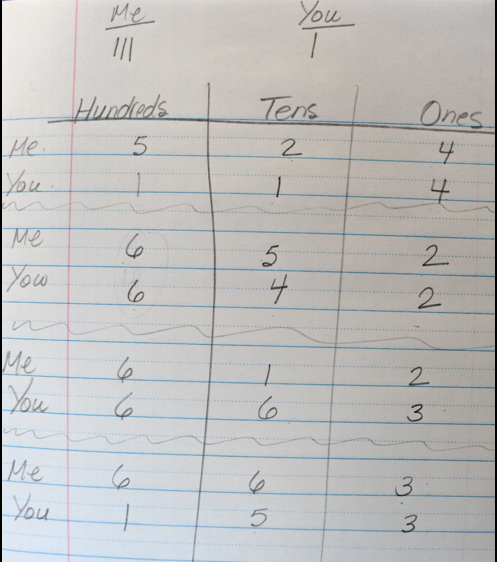 Me You
||| |
Hundreds Tens Ones
Me. 5 2 4
You. 1 1 4
Me 6 5 2
You 6 4 2
Me 6 1 2
You 6 6 3
Me 6 6 3
You 1 5 3